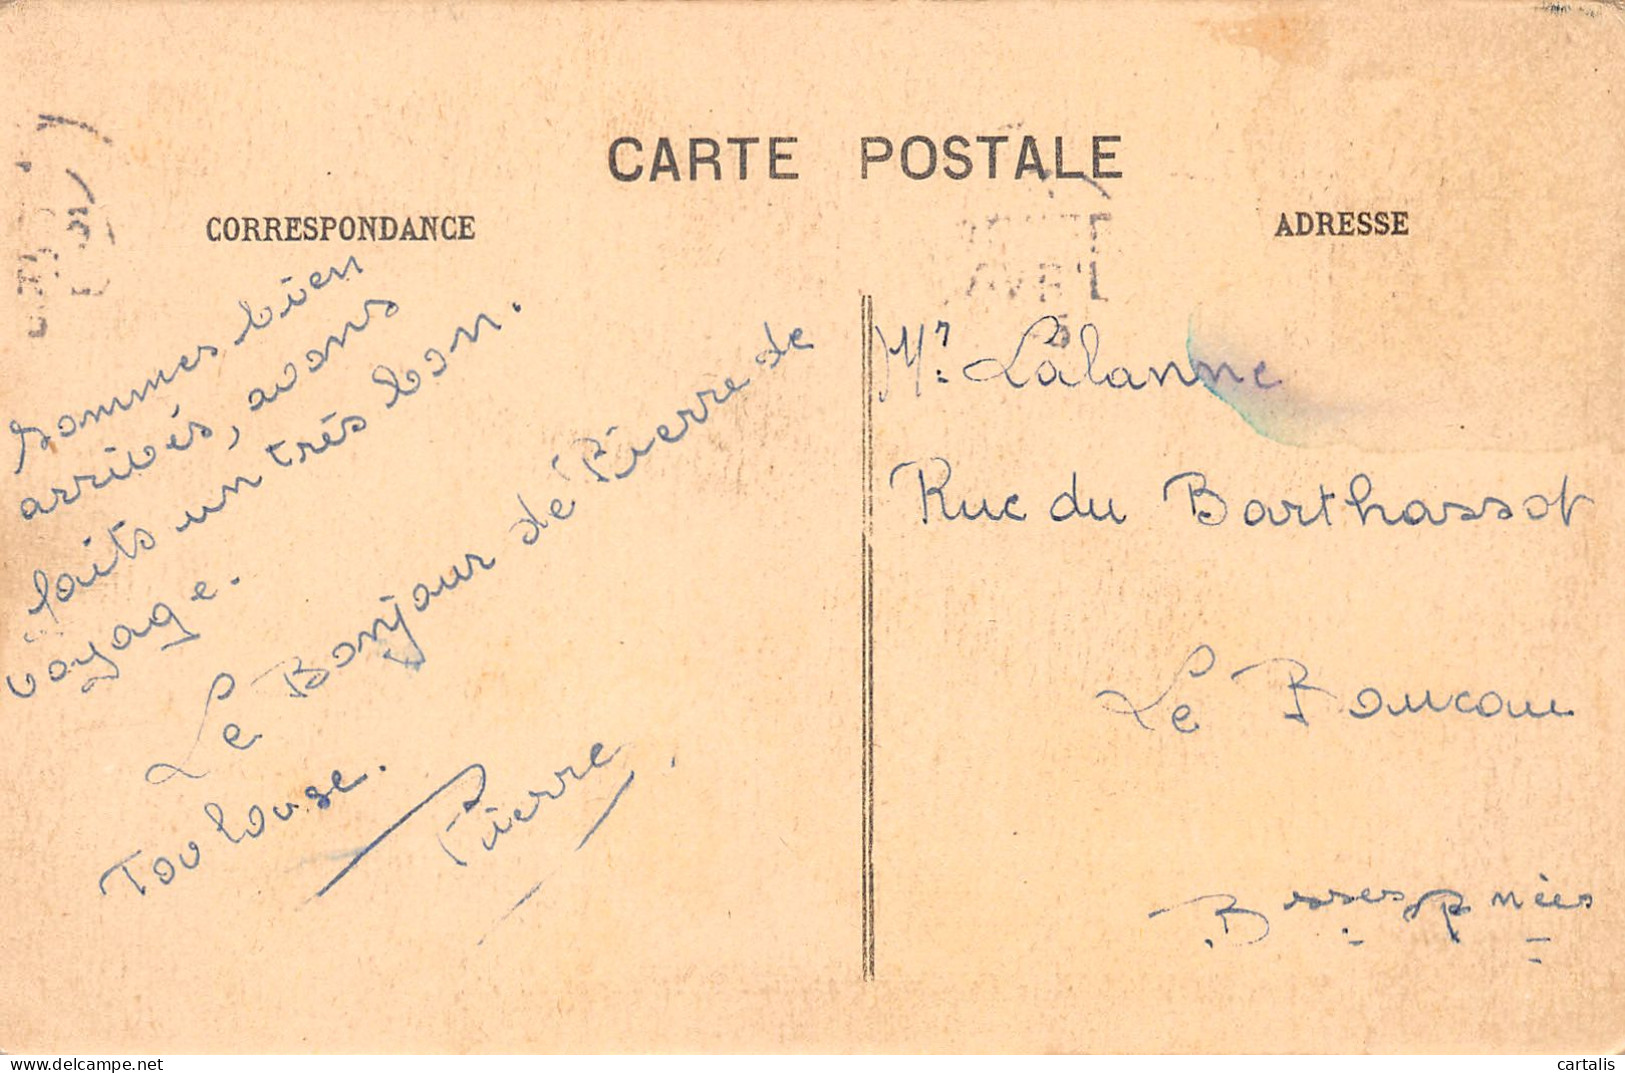 CARTE POSTALE
CORRESPONDANCE
ADRESSE
Sommes bien
arrivés, avons
faits un très bon.
voyage.
Le Bonjour de Pierre de
Toulouse.
Pierre
Mr. Lalanne
Rue du Barthassot
Le Boucau
Bsses Pnées
cartalis